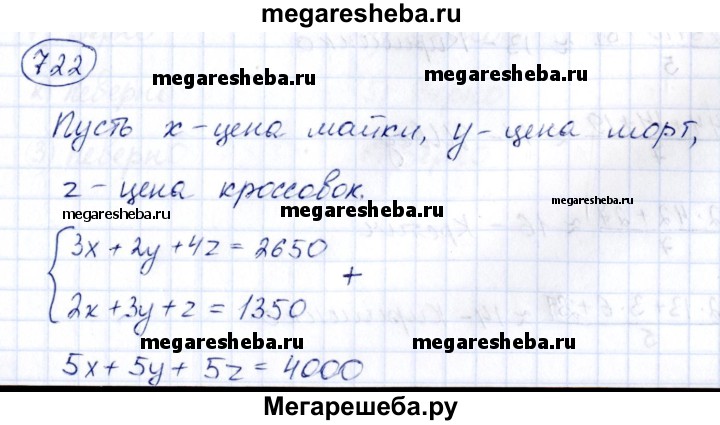 megaresheba.ru
722
megaresheba.ru
megaresheba.ru
Пусть x - цена майки, y - цена шорт,
z - цена кроссовок.
megaresheba.ru
megaresheba.ru
3x + 2y + 4z = 2650
+
2x + 3y + z = 1350
megaresheba.ru
megaresheba.ru
5x + 5y + 5z = 4000
Мегарешеба.ру